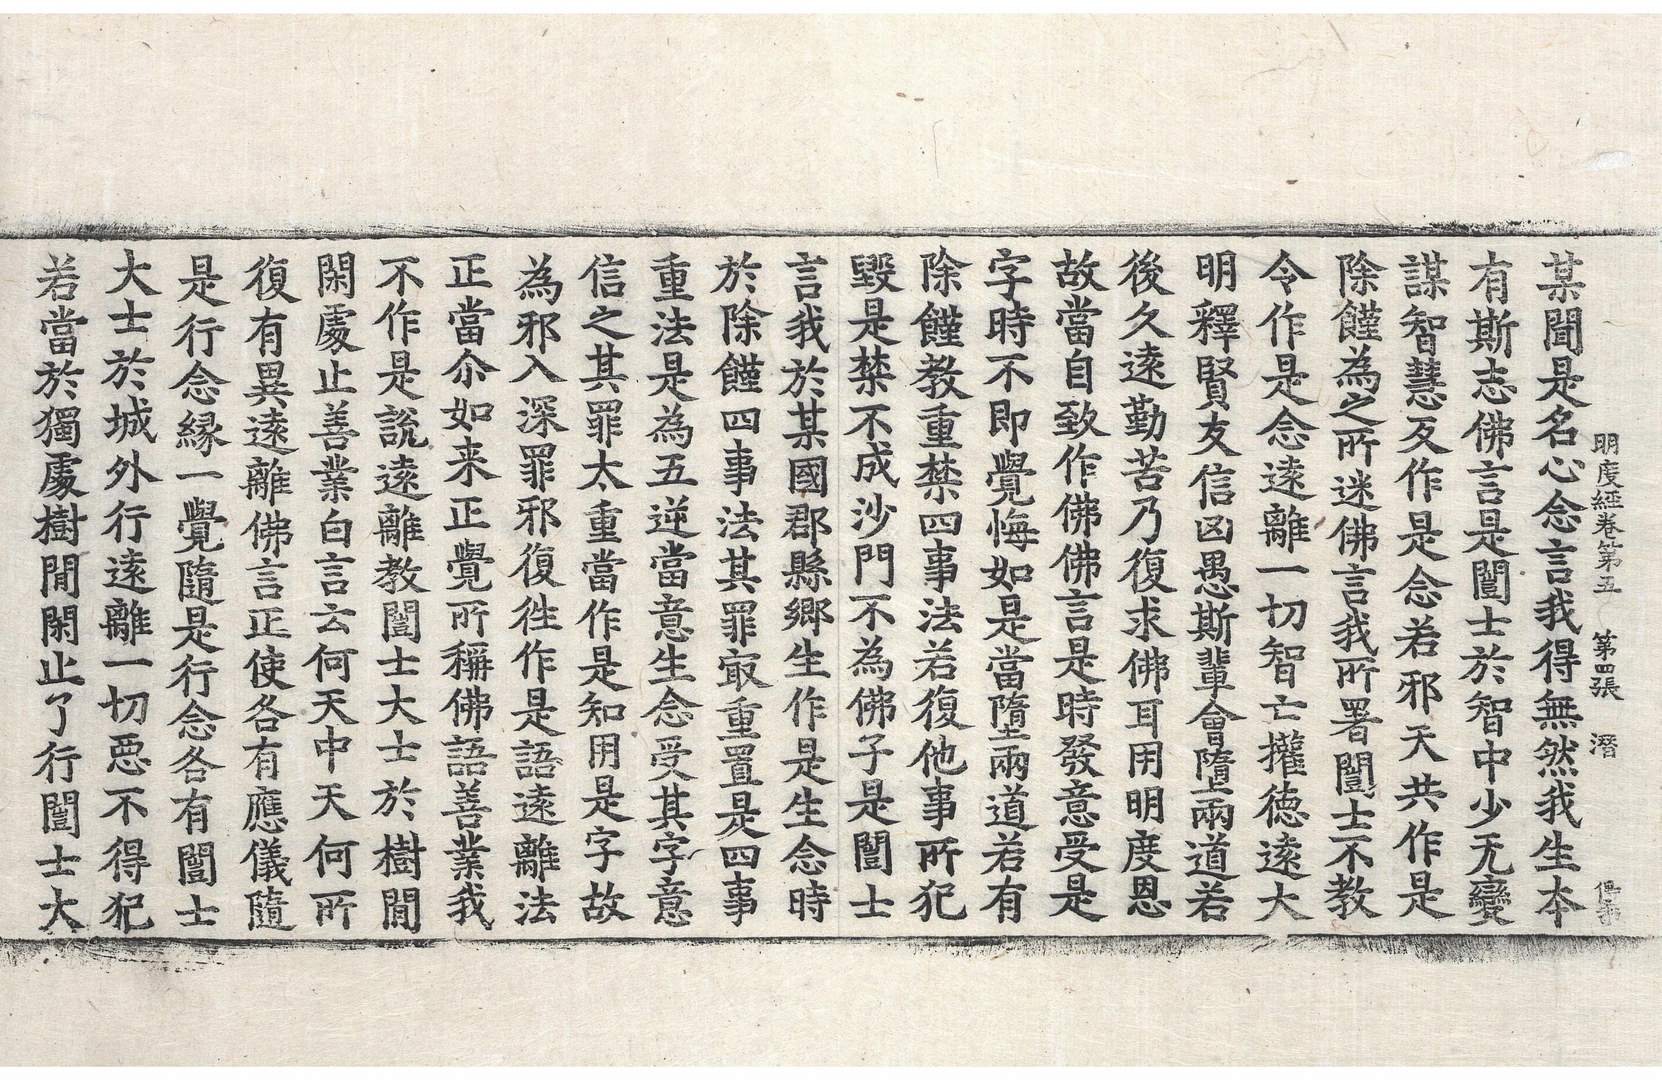 明度經卷第五　第四張　潛
某聞是名心念言我得無然我生本
有斯志佛言是闓士於智中少无變
謀智慧反作是念若邪天共作是
除饉為之所迷佛言我所署闓士不教
令作是念遠離一切智亡攉德遠大
明釋賢友信凶愚斯輩會墮兩道若
後久遠勤苦乃復求佛耳用明度恩
故當自致作佛佛言是時發意受是
字時不即覺悔如是當墮兩道若有
除饉教重禁四事法若復他事所犯
毀是禁不成沙門不為佛子是闓士
言我於某國郡縣鄉生作是生念時
於除饉四事法其罪㝡重置是四事
重法是為五逆當意生念受其字意
信之其罪太重當作是知用是字故
為邪入深罪邪復徃作是語遠離法
正當尒如来正覺所稱佛語善業我
不作是說遠離教闓士大士於樹間
閑處止善業白言云何天中天何所
復有異遠離佛言正使各有應儀隨
是行念緣一覺隨是行念各有闓士
大士於城外行遠離一切惡不得犯
若當於獨處樹間閑止了行闓士大